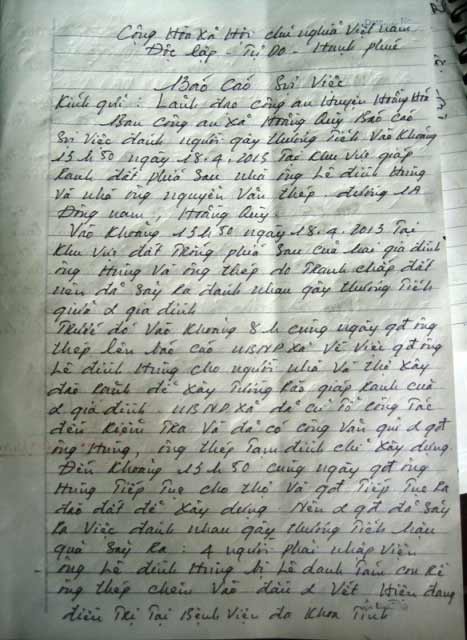 Cộng Hòa Xã Hội chủ nghĩa Việt nam
Độc lập - Tự Do - Hạnh phúc
Báo Cáo Sự Việc
Kính gửi : Lãnh đạo công an Huyện Hoằng Hóa
Ban Công an xã Hoằng Quỳ Báo cáo
Sự Việc đánh người gây thương Tích Vào Khoảng
15h50 ngày 18.4.2013 Tại Khu Vực giáp
Ranh đất phía Sau nhà ông Lê đình Hùng
Và nhà ông nguyễn Văn thép. đường 1A
Đông nam, Hoằng Quỳ.
Vào Khoảng 15h50 ngày 18.4.2013 Tại
Khu Vực đất Trống phía Sau của hai gia đình
ông Hùng Và ông thép do Tranh chấp đất
nên đã Sảy Ra đánh nhau gây thương Tích
giữa 2 gia đình
Trước đó Vào Khoảng 8h cùng ngày gđ ông
thép lên báo cáo UBND xã Về Việc gđ ông
Lê đình Hùng cho người nhà Và thợ Xây
đào Rãnh để Xây Tường Rào giáp Ranh của
2 gia đình. UBND xã đã cử Tổ công Tác
đến Kiểm TRa Và đã có công Văn gửi 2 gđ
ông Hùng, ông thép Tạm đình chỉ Xây dựng.
Đến Khoảng 15h50 cùng ngày gđ ông
Hùng Tiếp Tục cho thợ Và gđ Tiếp Tục Ra
đào đất để Xây dựng Nên 2 gđ đã Sảy
Ra Việc đánh nhau gây thương Tích hậu
quả Sảy Ra : 4 người phải nhập Viện
ông Lê đình Hùng bị Lê danh Tám con Rể
ông thép chém Vào đầu 2 Vết. Hiện đang
điều Trị Tại Bệnh Viện đa Khoa Tỉnh